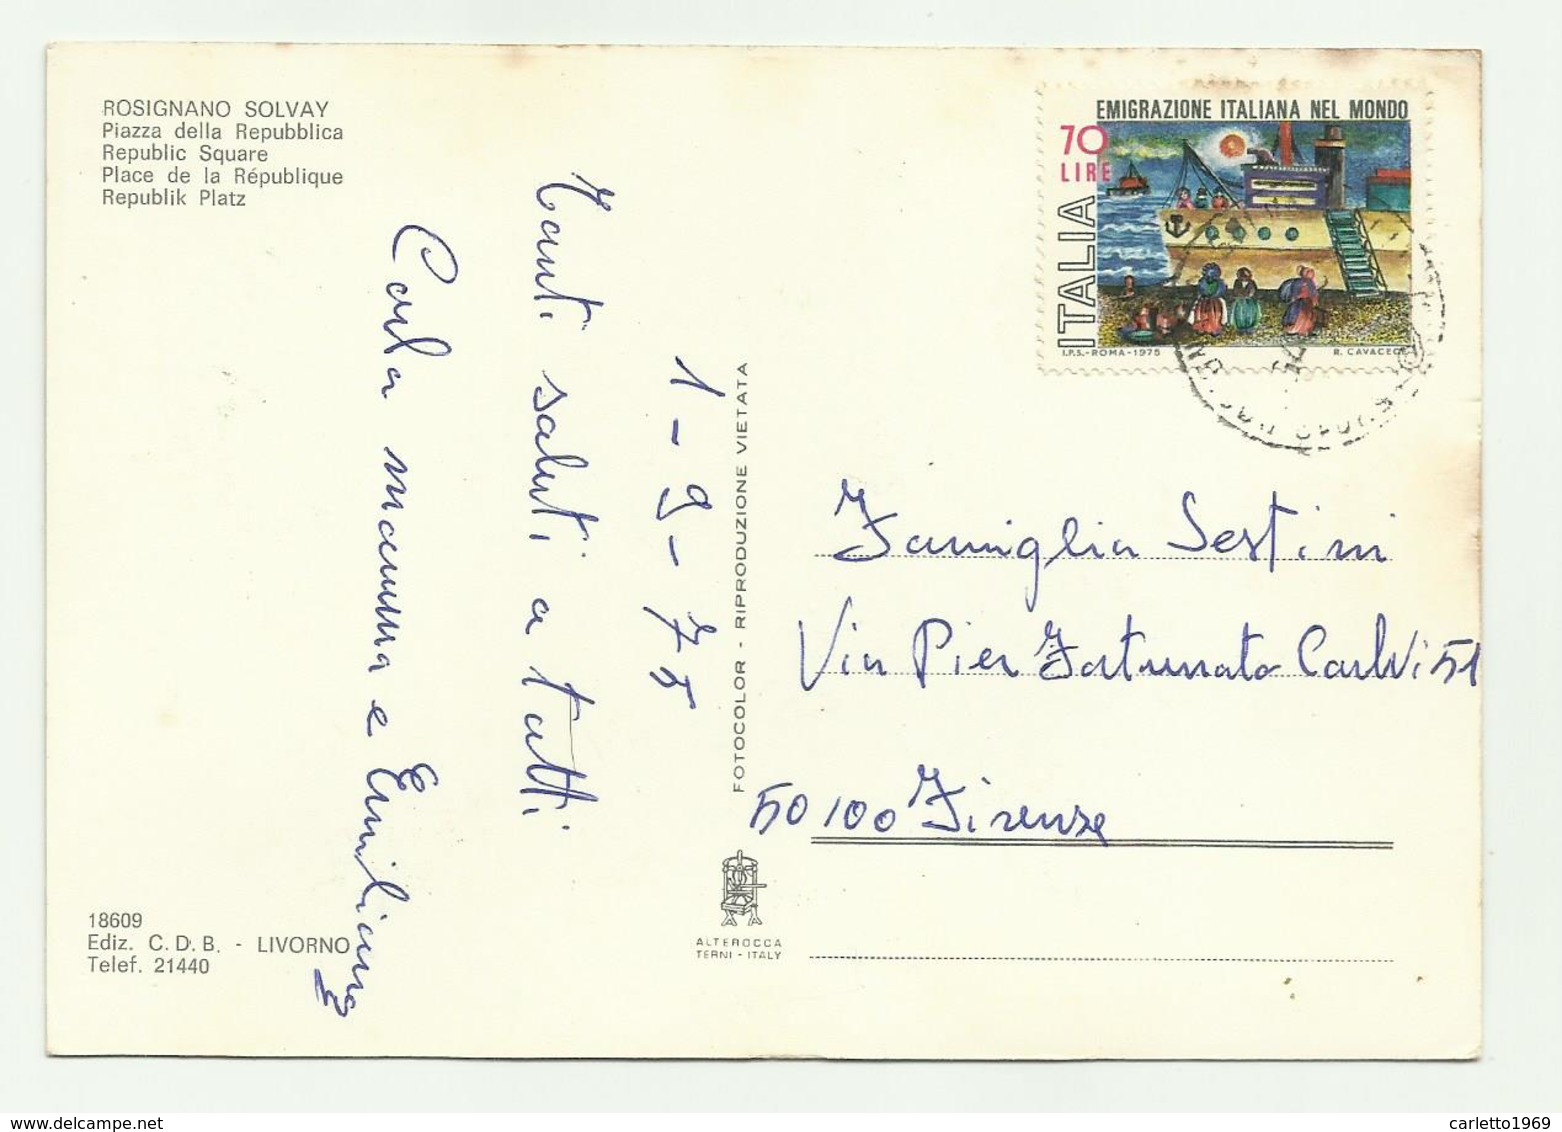 ROSIGNANO SOLVAY
Piazza della Repubblica
Republic Square
Place de la République
Republik Platz
1-9-75
Tanti saluti a tutti
Carla mamma e Emiliano
18609
Ediz. C. D. B. - LIVORNO
Telef. 21440
FOTOCOLOR - RIPRODUZIONE VIETATA
ALTEROCCA
TERNI - ITALY
EMIGRAZIONE ITALIANA NEL MONDO
70
LIRE
ITALIA
I.P.S. - ROMA - 1975
R. CAVACECE
Famiglia Sestini
Via Pier Fortunato Calvi 51
50100 Firenze
carletto1969